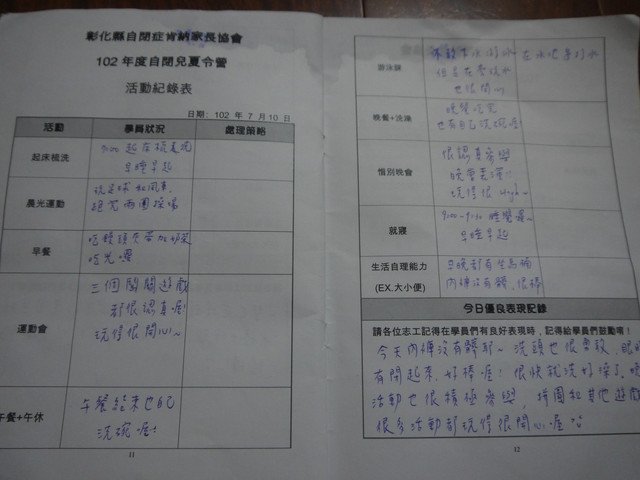 彰化縣自閉症肯納家長協會
102 年度自閉兒夏令營
活動紀錄表
日期: 102 年 7 月 10 日
活動 學員狀況 處理策略
起床梳洗
起床梳洗
早睡早起
晨光運動
玩足球和風車,
跑完兩圈操場
早餐
吃饅頭夾蛋加奶茶
吃光囉
運動會
三個闖關遊戲
都很認真喔!
玩得很開心~
午餐+午休
午餐結束也自己
洗碗喔!
11
游泳課
不敢下水游泳 在水池旁
但是在旁玩水
也很開心
晚餐+洗澡
晚餐吃完
也有自己洗碗喔!
惜別晚會
很認真參與
晚會表演!!
玩得很 high~
就寢
9:00~9:30 睡覺
早睡早起
生活自理能力
(EX.大小便)
早晚都有
內褲沒有髒,很棒
今日優良表現記錄
請各位志工記得在學員們有良好表現時,記得給學員們鼓勵唷!
今天內褲沒有髒耶~ 洗頭也很勇敢,眼睛
有閉起來,好棒喔! 很快就洗好澡了,晚
活動也很積極參與, 拼圖和其他遊戲
很多活動都玩得很開心喔
12